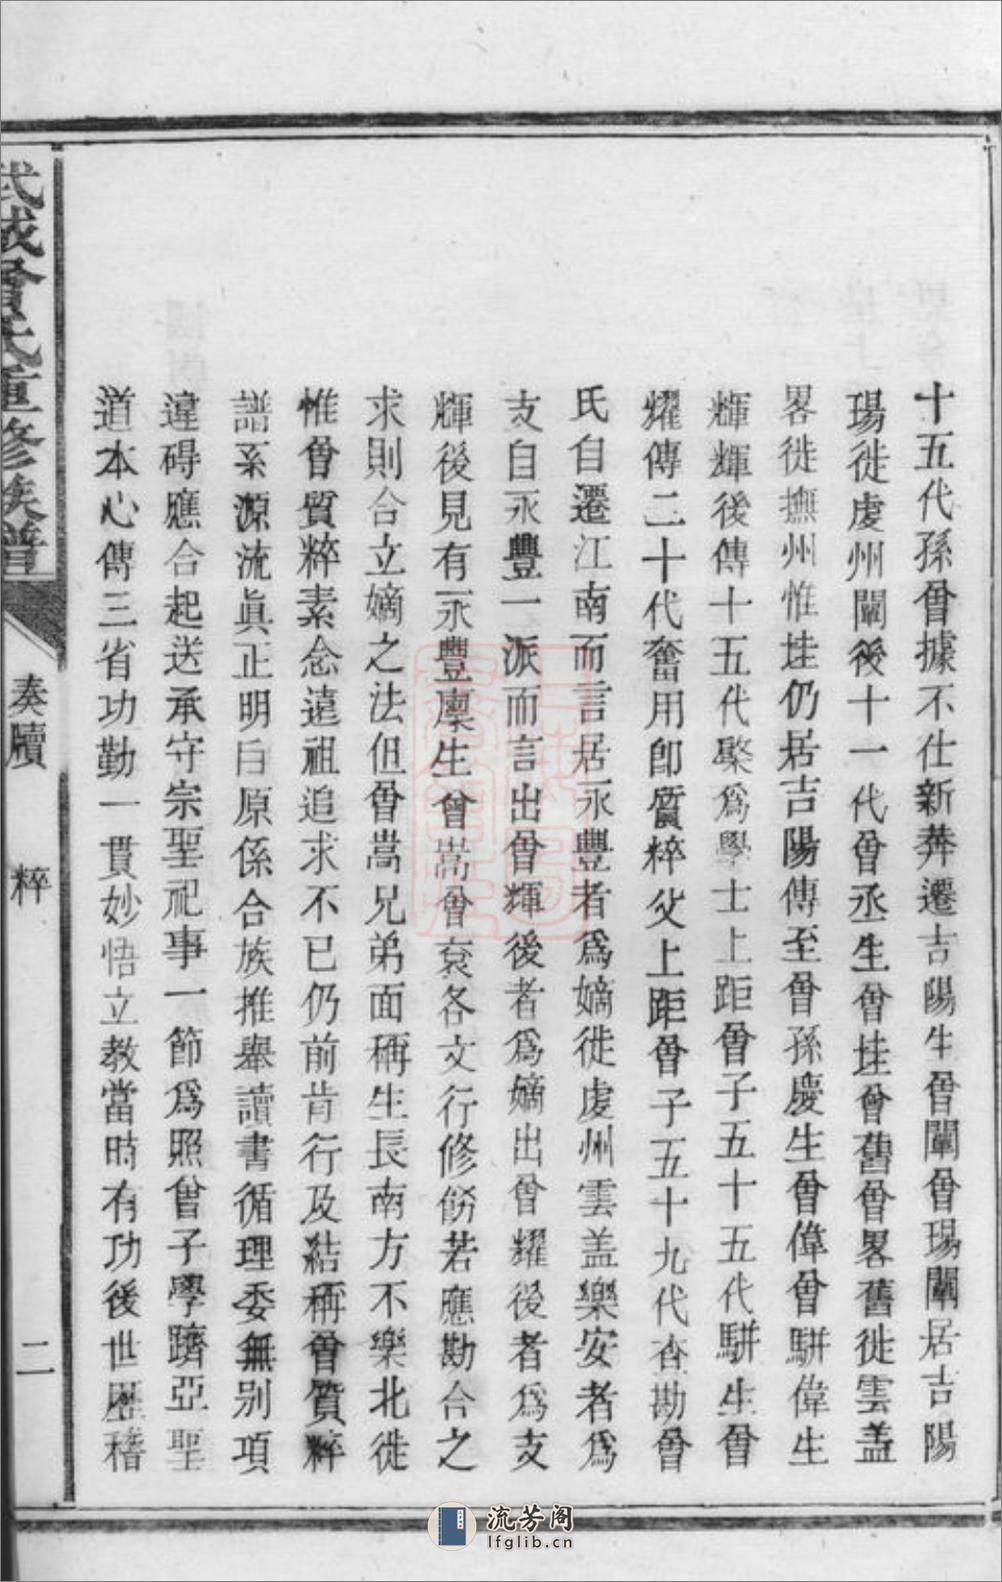 十五代孫曾據不仕新莽遷吉陽生曾闡曾瑒闡居吉陽
瑒徙虔州闡後十一代曾丞生曾珪曾舊曾畧舊徙雲盖
畧徙撫州惟珪仍居吉陽傳至曾孫慶生曾偉曾駢偉生
輝輝後傳十五代棨爲學士上距曾子五十五代駢生曾
耀傳二十代奮用卽質粹父上距曾子五十九代查勘曾
氏自遷江南而言居永豐者爲嫡徙虔州雲盖樂安者爲
支自永豐一派而言出曾輝後者爲嫡出曾耀後者爲支
輝後見有永豐廪生曾嵩曾袞各文行修飭若應勘合之
求則合立嫡之法但曾嵩兄弟面稱生長南方不樂北徙
惟曾質粹素念遠祖追求不已仍前肯行及結稱曾質粹
譜系源流眞正明白原係合族推舉讀書循理委無别項
違碍應合起送承守宗聖祀事一節爲照曾子學躋亞聖
道本心傳三省功勤一貫妙悟立教當時有功後世歴稽
武城曾氏重修族譜
奏牘
粹
二
流芳阁
lfglib.cn